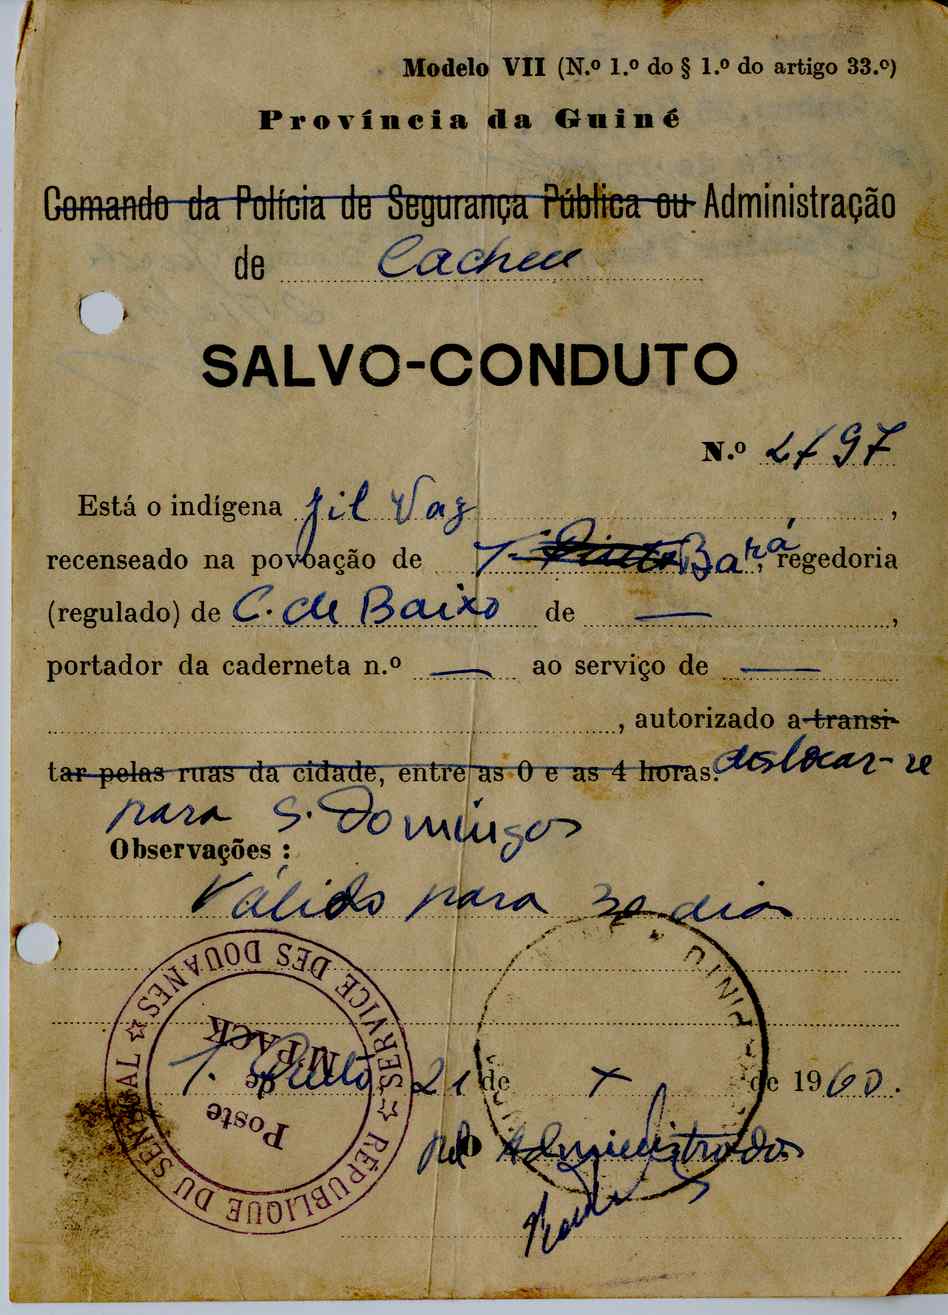 Modelo VII (N.º 1.º do § 1.º do artigo 33.º)
Província da Guiné
Comando da Polícia de Segurança Pública ou Administração
de Cacheu
SALVO-CONDUTO
N.º 2197
Está o indígena Jil Vaz,
recenseado na povoação de T. Pinto Bará, regedoria
(regulado) de C. de Baixo de —,
portador da caderneta n.º — ao serviço de —
, autorizado a transi-
tar pelas ruas da cidade, entre as 0 e as 4 horas. deslocar-se
para S. Domingos
Observações:
Válido para 30 dias
T. Pinto 21 de X de 1960.
pel Administrador
RÉPUBLIQUE DU SENEGAL ☆ SERVICE DES DOUANES ☆
Poste
de
M'PACK
PINTO